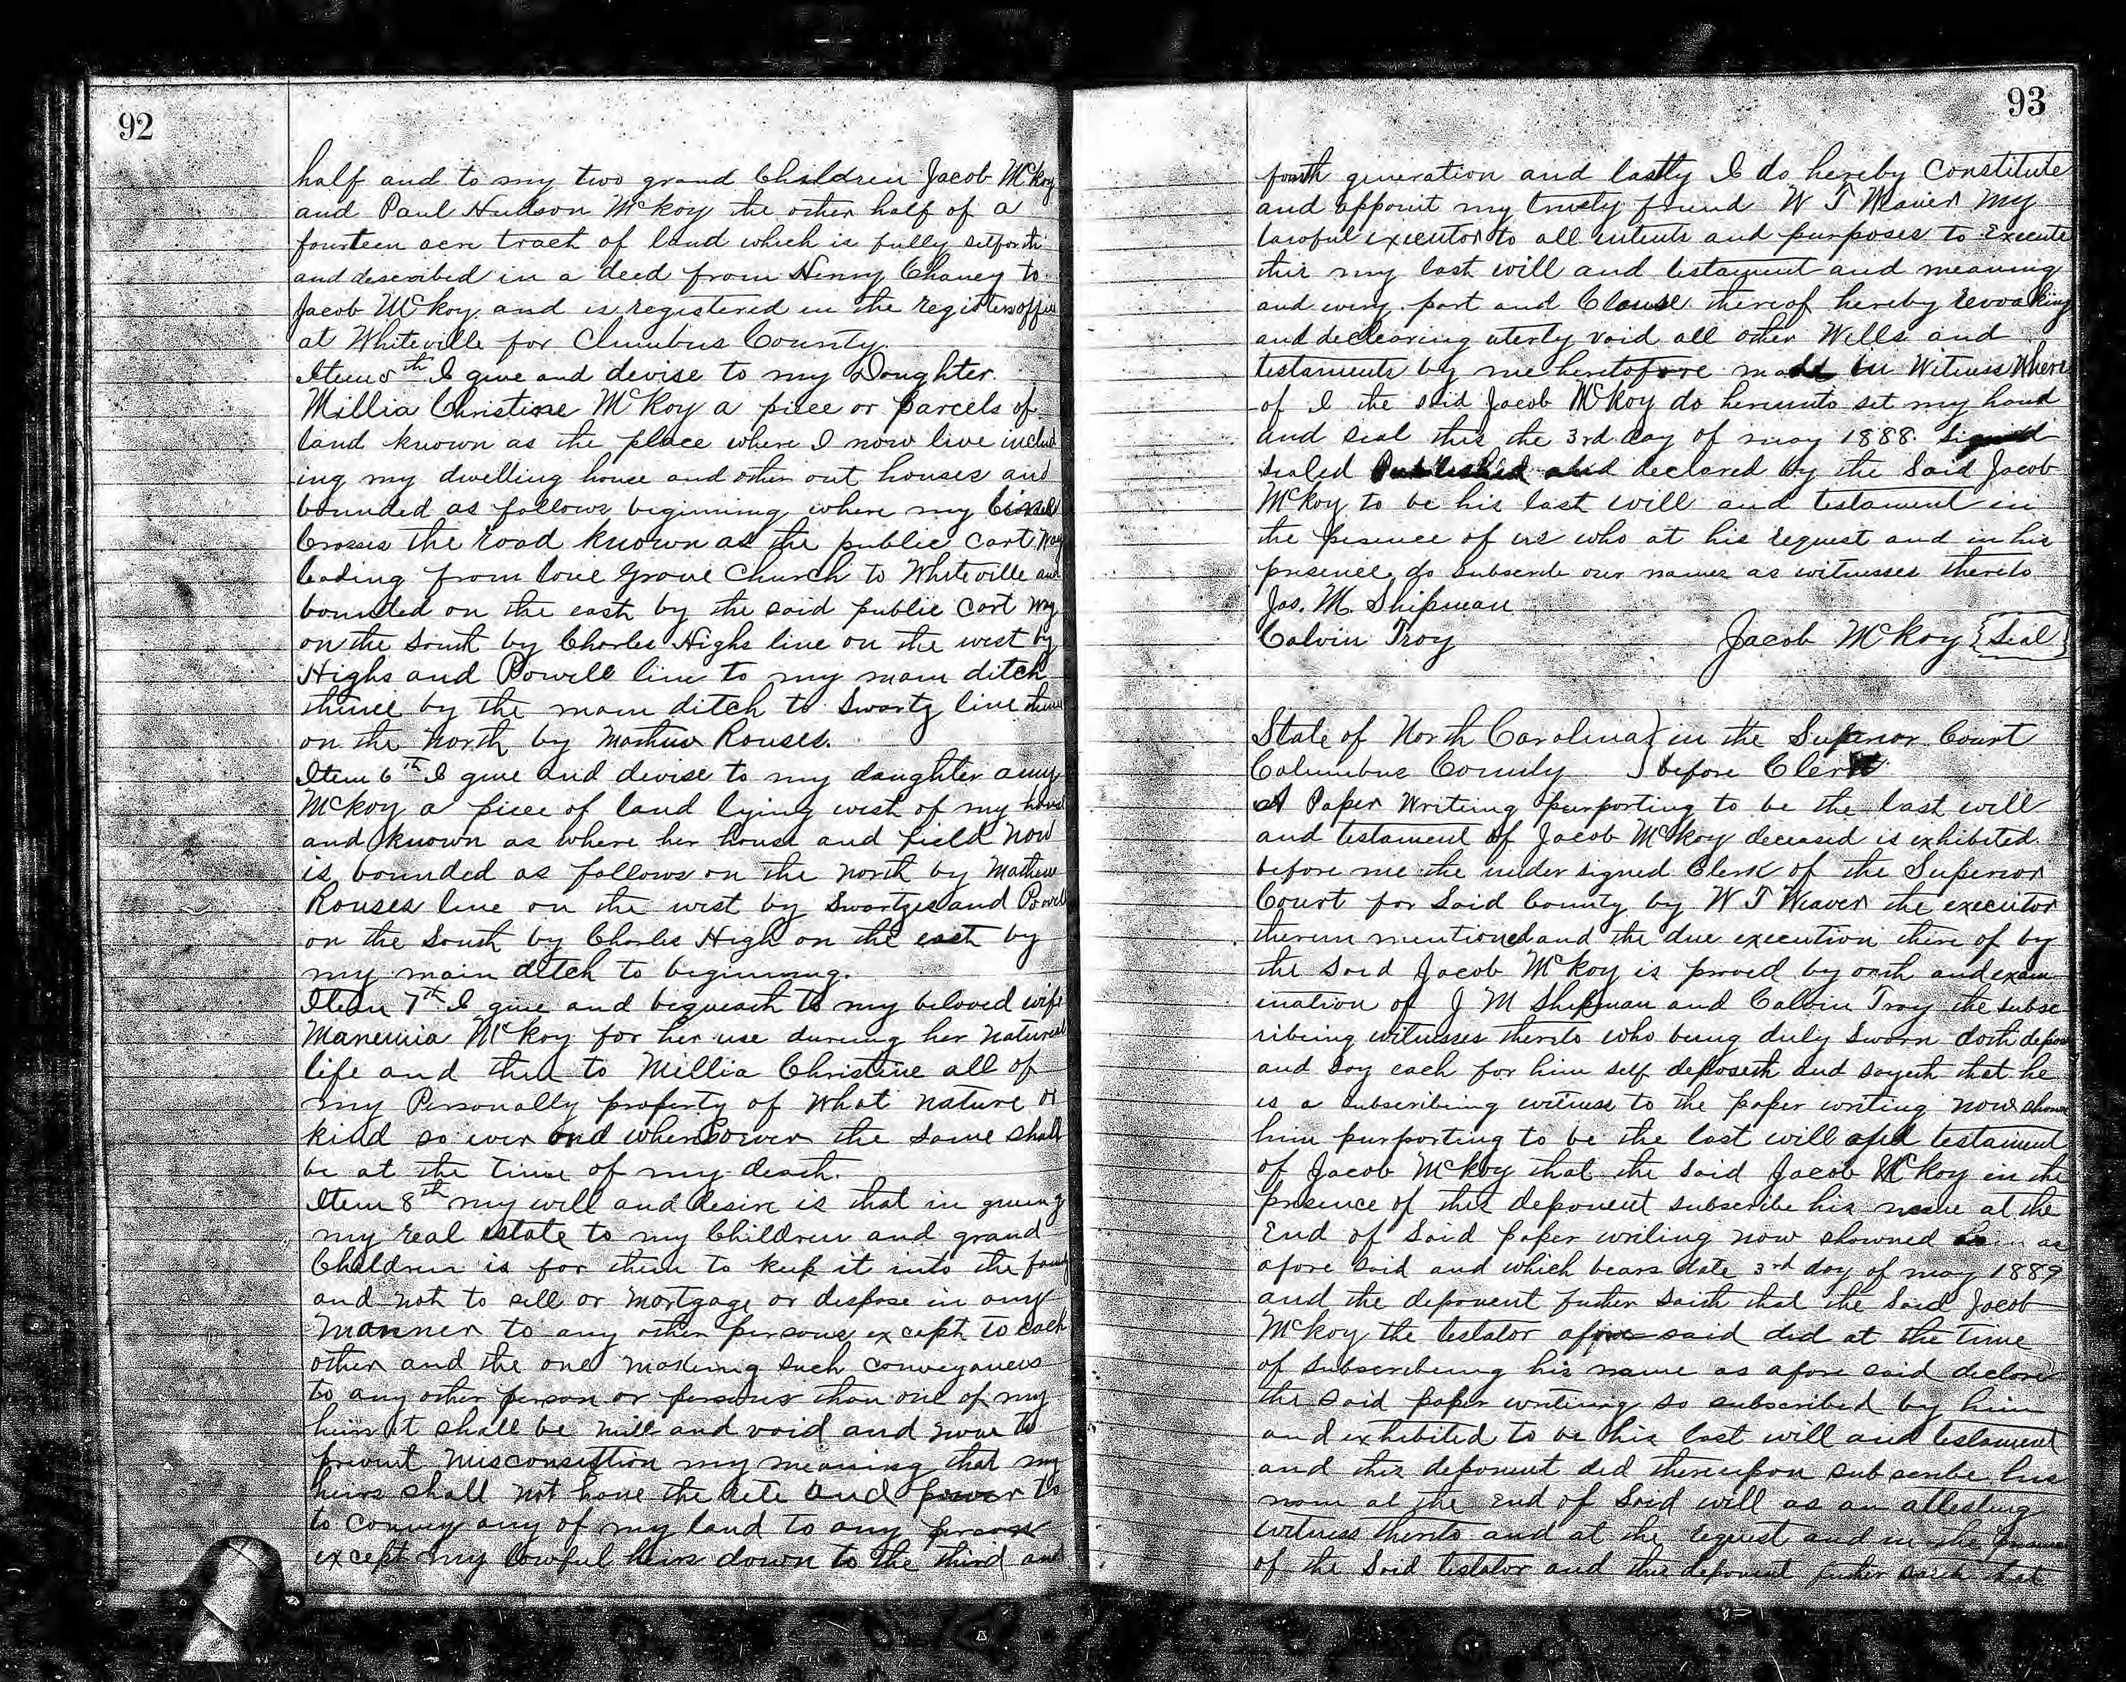 92
half and to my two grand Children Jacob McKoy
and Paul Hudson McKoy the other half of a
fourteen acre tract of land which is fully setforth
and described in a deed from Henry Chancy to
Jacob McKoy and is registered in the registers office
at Whiteville for Clumbus County.
Item 5th I give and devise to my Doughter
Millia Christine McKoy a piece or parcels of
land known as the place where I now live includ
ing my dwelling house and other out houses and
bounded as follows beginning where my
Crosses the road known as the public Cart Way
leading from love Grove Church to Whiteville and
bounded on the east by the said public Cart way
on the South by Charles Highs line on the west by
Highs and Powell line to my main ditch
thence by the main ditch to Swartz line thence
on the North by Mathew Rouses.
Item 6th I give and devise to my daughter amy
McKoy a piece of land lying west of my house
and known as where her house and field Now
is bounded as follows on the North by Mathew
Rouses line on the west by Swartzes and Powell
on the South by Charles High on the east by
my main ditch to beginning.
Item 7th I give and bequeath to my beloved wife
McKoy for her use during her natural
life and then to Millia Christine all of
my Personally property of what nature or
kind so ever and whersoever the same shall
be at the time of my death.
Item 8th my will and desire is that in giving
my real estate to my Children and grand
Children is for them to keep it into the family
and not to sell or mortgage or dispose in any
manner to any other persons except to each
other and the one making such conveyances
to any other person or persons than one of my
heirs it shall be null and void and now to
prevent my meaning that my
heirs shall not have the rite and power to
to convey any of my land to any person
except my lowful heirs down to the third and
93
fourth generation and lastly I do hereby Constitute
and appoint my trusty friend W T Weaver my
lawful executor to all intents and purposes to Execute
this my last will and testament and meaning
and every part and Clause thereof hereby revoaking
and declearing uterly void all other Wills and
testaments by me heretofore made In Witness Where
of I the said Jacob McKoy do hereunto set my hand
and seal this the 3rd day of may 1888. Signed
sealed Published and declared by the Said Jacob
McKoy to be his last will and testament in
the presence of us who at his request and in his
presence do subscribe our names as witnesses thereto
Jas. M. Shipman
Calvin Troy Jacob McKoy {Seal}
State of North Carolina } in the Superior Court
Columbus County } before Clerk
A Paper Writing purporting to be the last will
and testament of Jacob McKoy deceased is exhibited
before me the under signed Clerk of the Superior
Court for Said County by W T Weaver the executor
therein mentioned and the due execution there of by
the said Jacob McKoy is proved by oath and exam
ination of J M Shipman and Calvin Troy the subsc
ribing witnesses thereto who being duly Sworn doth depose
and say each for him self deposeth and sayeth that he
is a subscribing witness to the paper writing now shown
him purporting to be the last will and testament
of Jacob McKoy that the said Jacob McKoy in the
presence of this deponent subscribe his name at the
End of Said paper writing now showned him as
afore said and which bears date 3rd day of may 1889
and the deponent futher saith that the said Jacob
McKoy the testator afore said did at the time
of subscribeing his name as afore said declare
the said paper writing so subscribed by him
and exhibited to be his last will and testament
and this deponent did thereupon subscribe his
nam at the End of Said will as an attesting
witness thereto and at the request and in the presence
of the Said testator and this deponent futher saith that